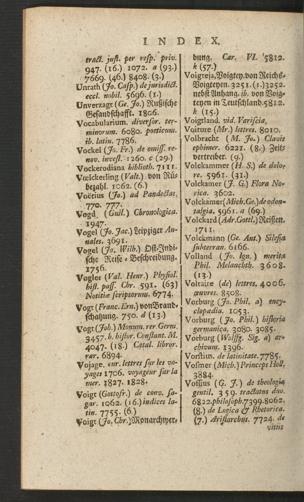 INDEX.
tract. just. per resp. priv.
947. (16.) 1072. a (93.)
7669. (46.) 8408. (3.)
Unrath (Jo. Casp.) de jurisdict.
eccl. nobil. 5696. (1.)
Unverzagt (Ge. Jo.) Rußische
Gesandschafft. 1806.
Vocabularium diversar. ter-
minorum. 6080. poeticum.
ib. latin. 7786.
Vockel (Jo. Fr.) de emiss. re-
nov. invest. 1260. e (29.)
Vockerodiana biblioth. 7111.
Vœlckerling (Valt.) von Rüs
bezahl. 1062. (6.)
Voetius (Jo.) ad Pandectas.
770. 777.
Vogd (Guil.) Chronologica.
1947.
Vogel (Jo. Jac.) Leipziger An-
nales. 3691.
Vogel (Jo. Wilh.) Ost-Indi-
sche Reise-Beschreibung.
1756.
Vogler (Val. Henr.) Physiol.
hist. pass. Chr. 591. (63)
Notitiæ scriptorum. 6774.
Vogt (Franc. Ern.) von Brand-
schatzung. 750. d (13.)
Vogt (Joh.) Monum. rer Germ.
3457. h. histor. Constant. M.
4047. (18.) Catal. librer.
rar. 6894.
Vojage, eur. lettres sur les vo-
yages 1706. voyageur sur la
mer. 1827. 1828.
Voigt (Gottofr.) de conv. sa-
gar. 1062. (16.) indices la-
tin. 7755. (6.)
Voigt (Jo. Chr.) Monarchner-
dung. Car. VI. 5812.
k (57.)
Voigteja, Voigtey. von Reichs-
Voigteyen. 3251. (1.) 3252.
nebst Anhang. ib. von Voig-
teyen in Teutschland. 5812.
k (15.)
Voigtland. vid. Variscia.
Voiture (Mr.) lettres. 8010.
Volbrecht (M. Jo.) Clavis
ephimer. 6221. (8.) Zeit-
vertreiber. (9.)
Volckammer (H. S.) de dolo-
re. 5961. (31.)
Volckamer (J. G.) Flora No-
rica. 3602.
Volckamer (Mich. Ge.) de odon-
talgia. 5961. a (69.)
Volckard (Adr. Gottl.) Reisten.
1711.
Volckmann (Ge. Ant.) Silesia
subterran. 6166.
Volland (Jo. Ign.) merita
Phil. Melanchth. 3608.
(13.)
Voltaire (de) lettres. 4006.
œuvres. 8508.
Vorburg (Jo. Phil. a) ency-
clopædia. 1053.
Vorburg (Jo. Phil.) historia
germanica. 3080. 3085.
Vorburg (Wolffg. Sig. a) ar-
chivum. 1396.
Vorstius. de latinitate. 7785.
Vosmer (Mich.) Princeps Holl.
3884.
Vossius (G. J.) de theologia
gentil. 359. tractatus duo.
6822. philosoph. 7399. 8062.
(8.) de Logica & Rhetorica.
(7.) Aristarchus. 7724. de
vitiis